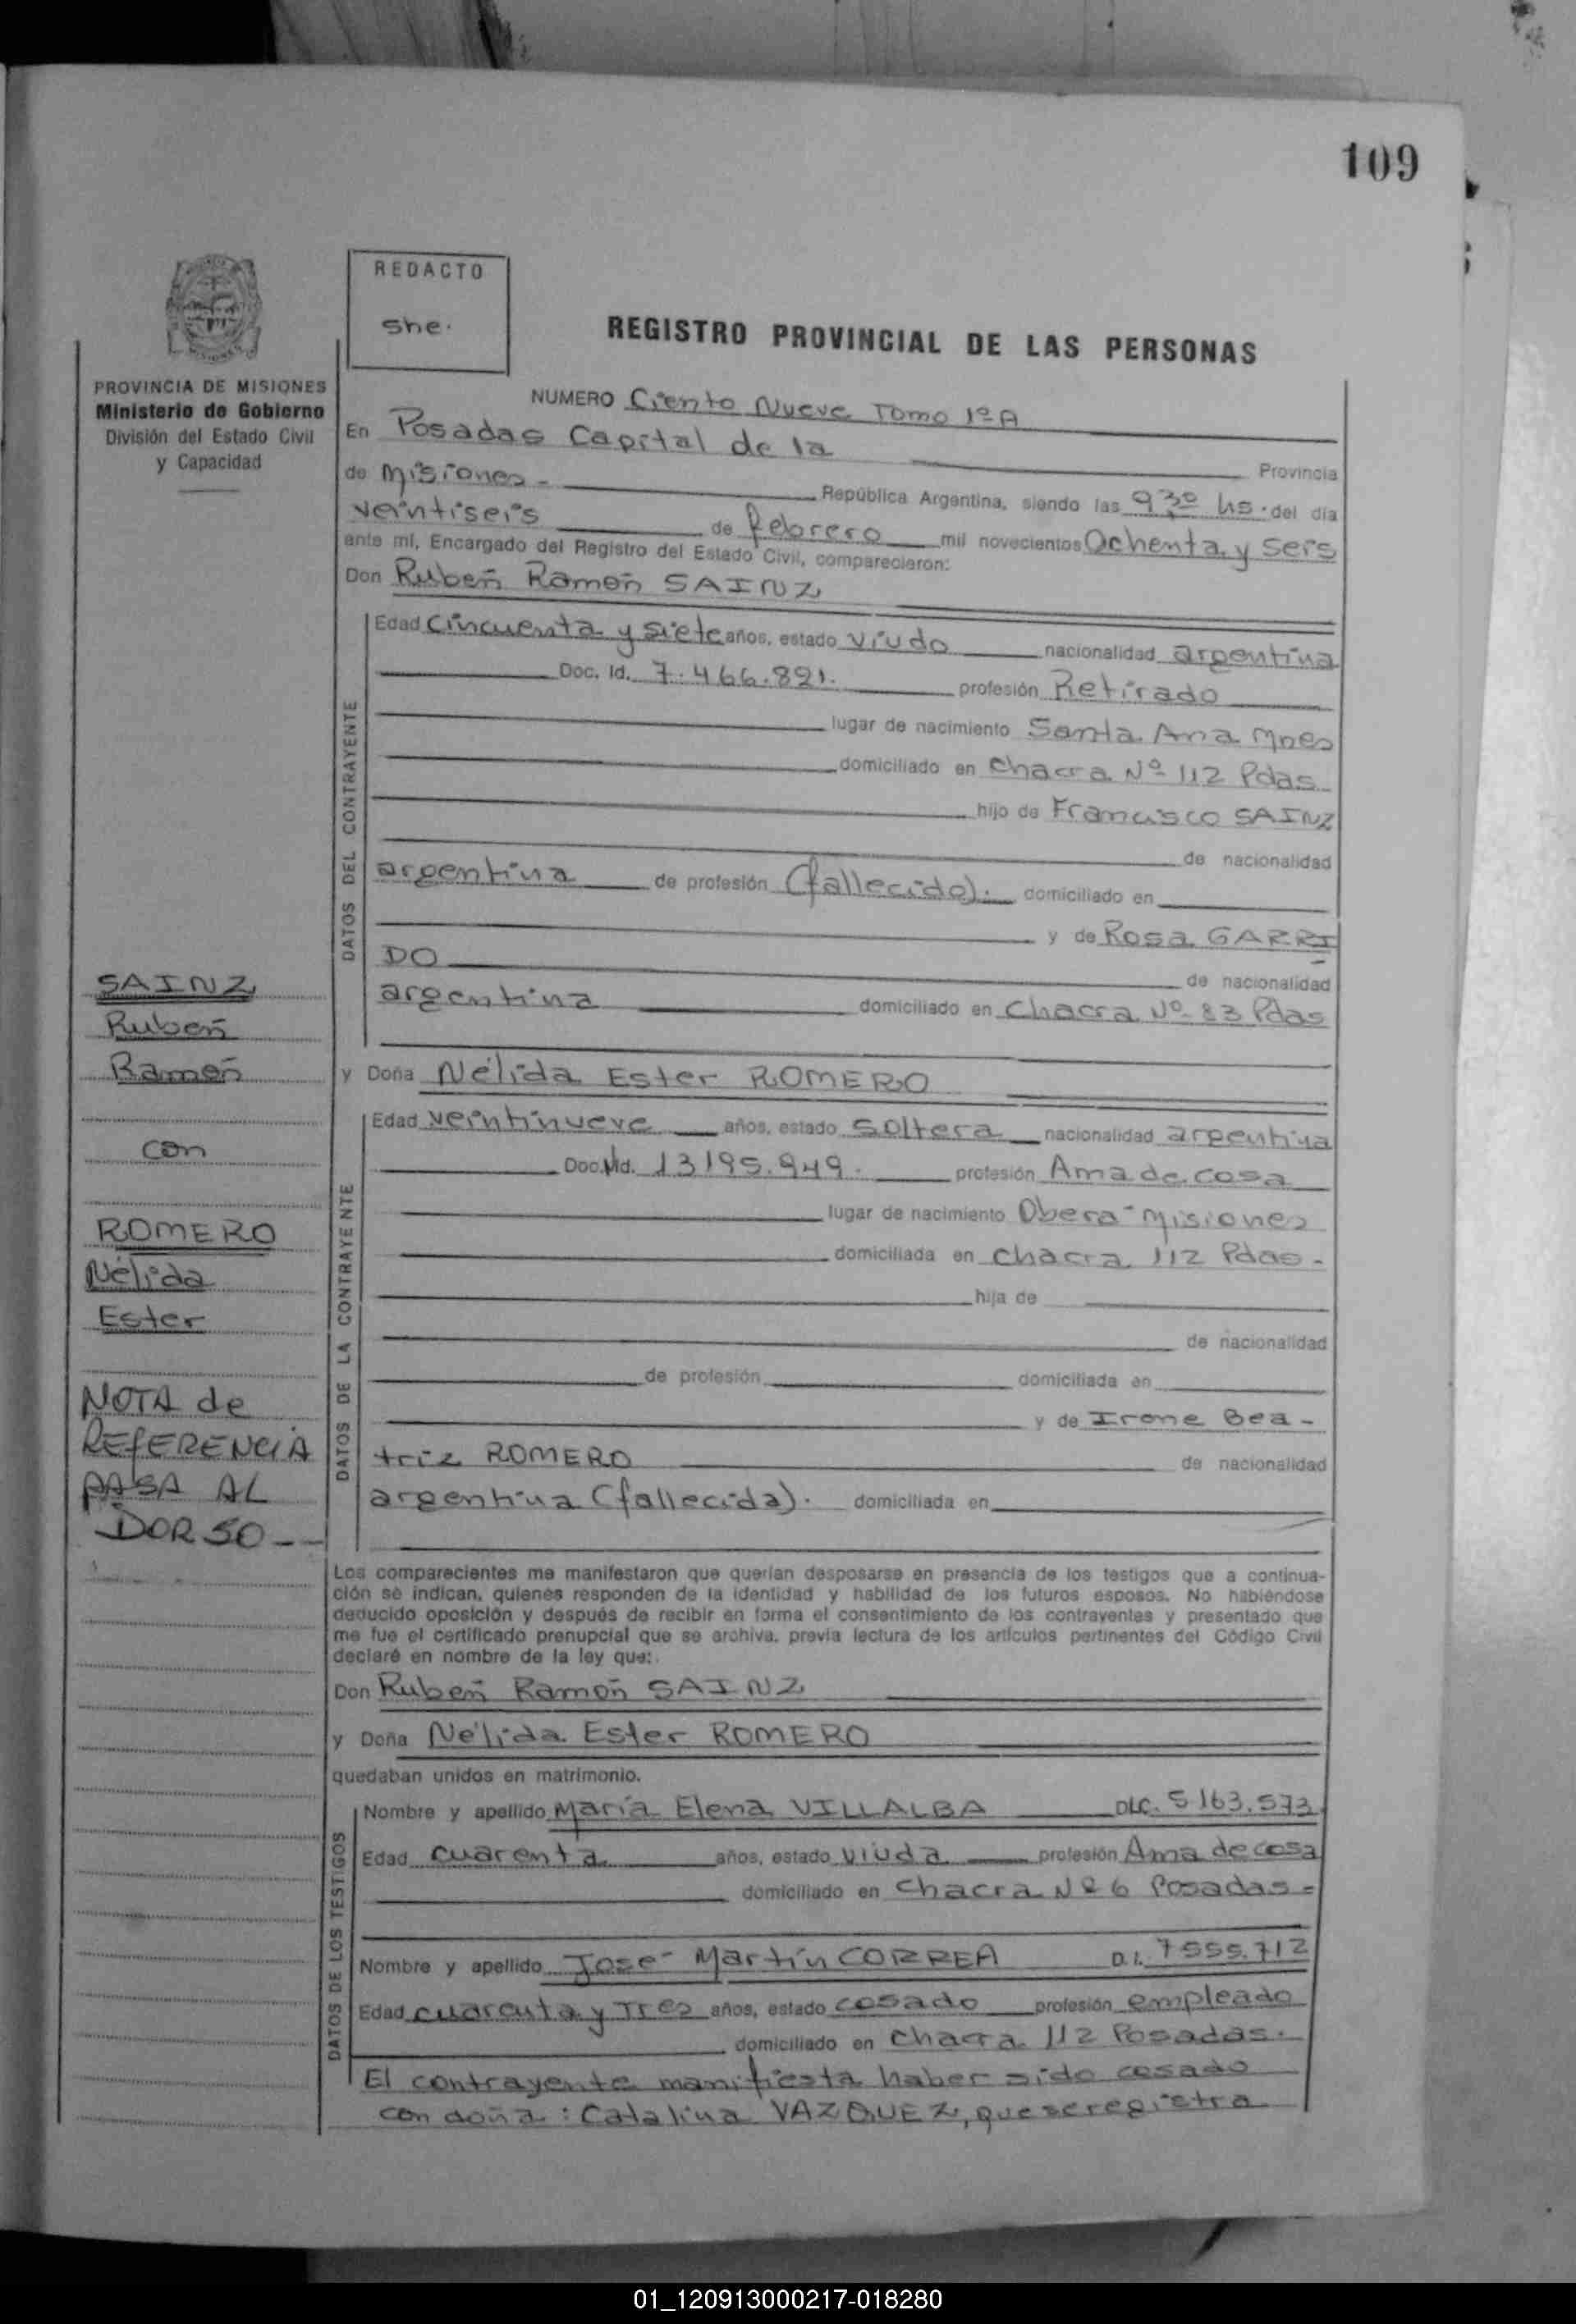 109
REDACTO
she.
REGISTRO PROVINCIAL DE LAS PERSONAS
PROVINCIA DE MISIONES
Ministerio de Gobierno
División del Estado Civil
y Capacidad
NUMERO Ciento Nueve Tomo 1º A
En Posadas Capital de la Provincia
de Misiones - República Argentina, siendo las 9,30 hs. del día
veintiseis de febrero mil novecientos Ochenta y seis
ante mí, Encargado del Registro del Estado Civil, comparecieron:
Don Rubén Ramón SAINZ
DATOS DEL CONTRAYENTE
Edad cincuenta y siete años, estado viudo nacionalidad argentina
Doc. Id. 7.466.821. profesión Retirado
lugar de nacimiento Santa Ana Mnes
domiciliado en chacra Nº 112 Pdas
hijo de Francisco SAINZ
de nacionalidad
argentina de profesión (fallecido). domiciliado en
y de Rosa GARRI
DO de nacionalidad
argentina domiciliado en Chacra Nº 83 Pdas
y Doña Nélida Ester ROMERO
DATOS DE LA CONTRAYENTE
Edad veintinueve años, estado soltera nacionalidad argentina
Doc. Id. 13195.949. profesión Ama de casa
lugar de nacimiento Obera-Misiones
domiciliada en chacra 112 Pdas -
hija de
de nacionalidad
de profesión domiciliada en
y de Irone Bea -
triz ROMERO de nacionalidad
argentina (fallecida). domiciliada en
SAINZ
Rubén
Ramón
con
ROMERO
Nélida
Ester
NOTA de
REFERENCIA
PASA AL
DORSO - -
Los comparecientes me manifestaron que querían desposarse en presencia de los testigos que a continua-
ción se indican, quienes responden de la identidad y habilidad de los futuros esposos. No habiéndose
deducido oposición y después de recibir en forma el consentimiento de los contrayentes y presentado que
me fue el certificado prenupcial que se archiva, previa lectura de los artículos pertinentes del Código Civil
declaré en nombre de la ley que:
Don Rubén Ramón SAINZ
y Doña Nélida Ester ROMERO
quedaban unidos en matrimonio.
DATOS DE LOS TESTIGOS
Nombre y apellido María Elena VILLALBA DLC. 5163.573
Edad cuarenta años, estado viuda profesión Ama de casa
domiciliado en Chacra Nº 6 Posadas =
Nombre y apellido José Martín CORREA D.I. 7555.712
Edad cuarenta y Tres años, estado casado profesión empleado
domiciliado en chacra 112 Posadas.
El contrayente manifiesta haber sido casado
con doña : Catalina VAZQUEZ, que se registra
01_120913000217-018280